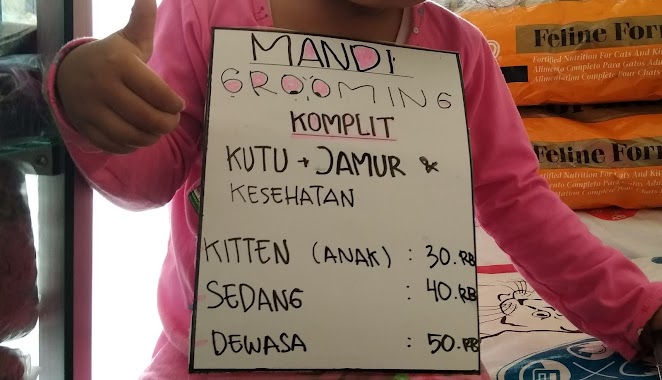 MANDI
GROOMING
KOMPLIT
KUTU + JAMUR &
KESEHATAN
KITTEN (ANAK) : 30.RB
SEDANG : 40.RB
DEWASA : 50.RB
Feline For
Fortified Nutrition For Cats And Kit
Alimento Completo Para Gatos Adul
Alimentation Complete Pour Chats
Feline For
Nutrition For Cats And Kit
Completo Para Gatos Adul